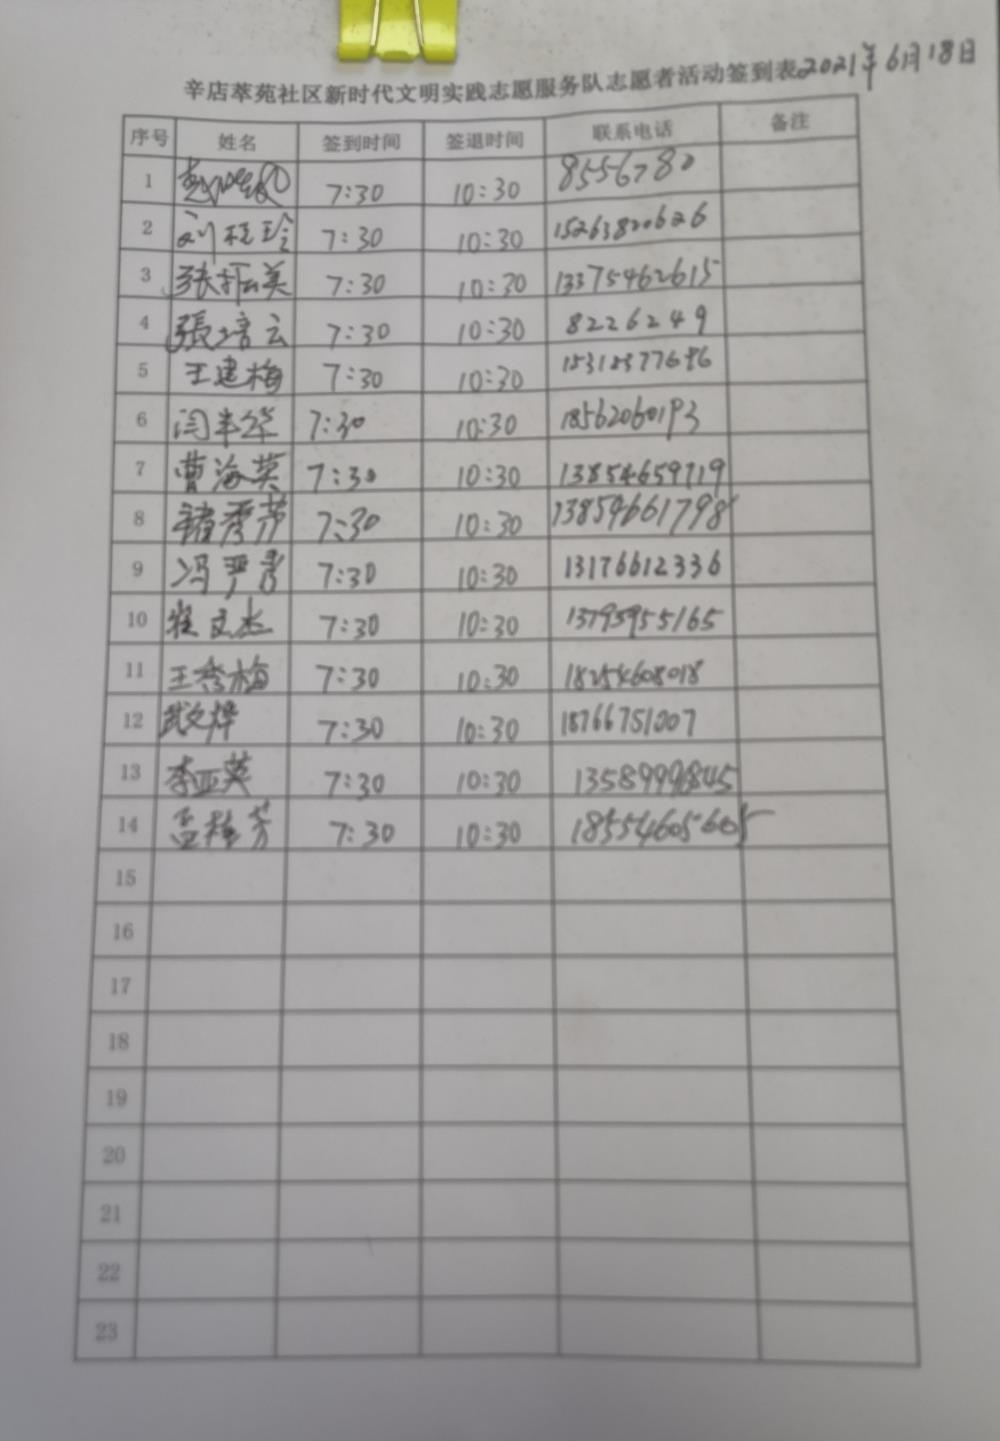 辛店萃苑社区新时代文明实践志愿服务队志愿者活动签到表2021年6月18日
序号 姓名 签到时间 签退时间 联系电话 备注
1 7:30 10:30 8556780
2 刘桂珍 7:30 10:30 15263820626
3 张振英 7:30 10:30 13375462615
4 張培云 7:30 10:30 8226249
5 王建梅 7:30 10:30
6 闫丰华 7:30 10:30
7 曹海英 7:30 10:30 13854659719
8 褚秀芳 7:30 10:30 13854661798
9 冯 7:30 10:30 13176612336
10 崔文杰 7:30 10:30 13795955165
11 王秀梅 7:30 10:30 18254608018
12 武文烨 7:30 10:30
13 李亚英 7:30 10:30
14 桂芳 7:30 10:30 18554605605
15
16
17
18
19
20
21
22
23